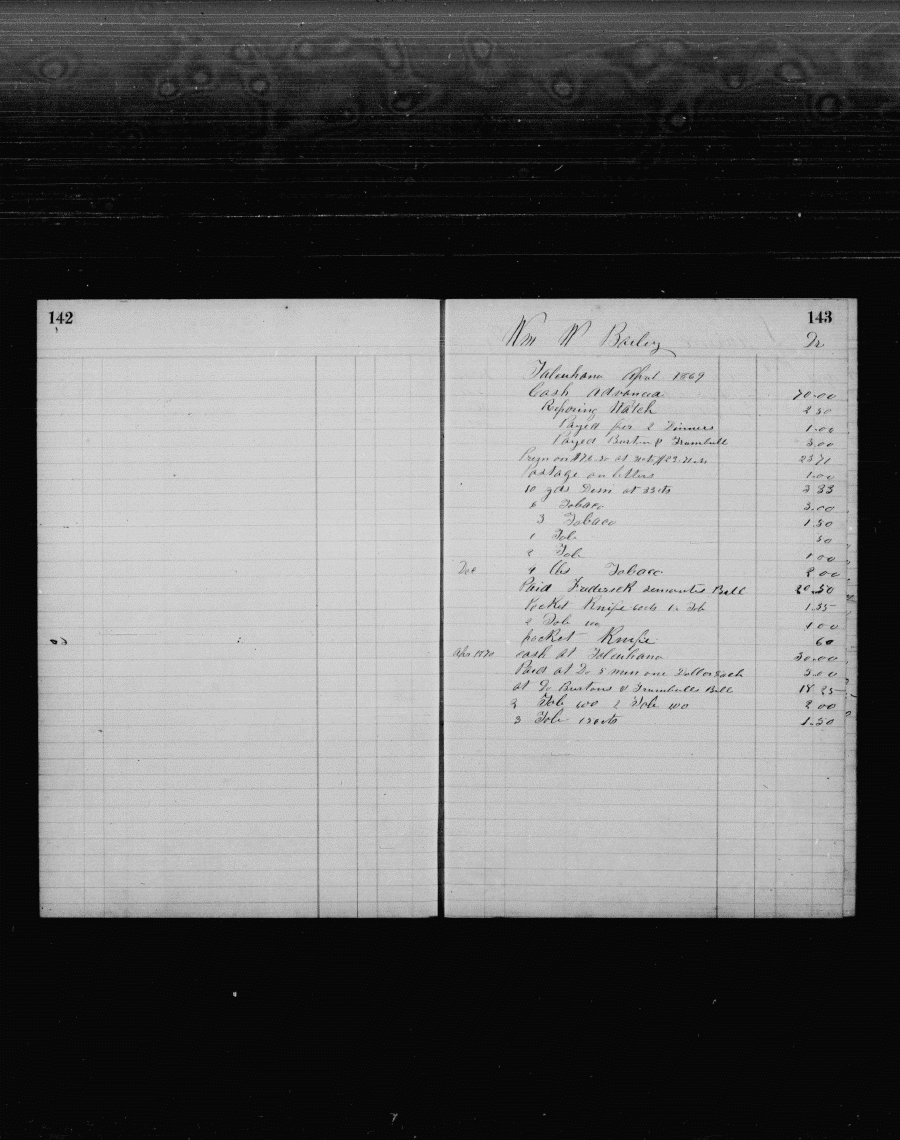 142
143
Wm W Bailey Dr
Talcuhano April 1869
Cash Advanced 70.00
Reparing Watch 2 50
Payed for 2 Dinners 1.00
Payed Burton & Trumbull 3.00
Prem on at 23 71
Postage on letters 1.00
10 yds Dem at 33 cts 3 33
6 Tobaco 3.00
3 Tobaco 1.50
1 Tob 50
2 Tob 1 00
Dec 4 lbs Tobaco 2 00
Paid Frederick Bill 20.50
Pocket Knife Tob 1.35
2 Tob 100 1 00
pocket Knife 60
Apr 1870 cash at Talcuhano 30.00
Paid at Do 3 men one Dollar each 3 00
at Do Burtons & Trumbulls Bill 18 25
2 Tob 100 2 Tob 100 2 00
3 Tob 150 cts 1.50